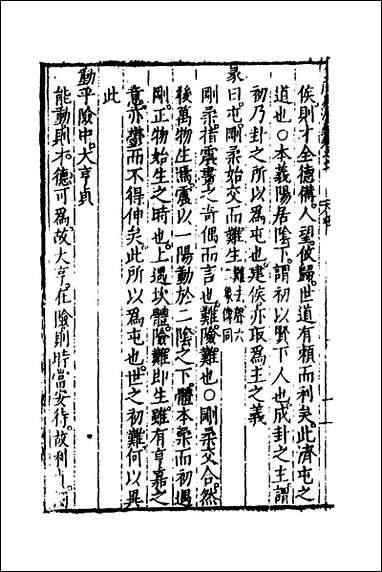 侯則才全德備人望攸歸世道有賴而利矣此濟屯之
道也○本義陽居陰下謂初以賢下人也成卦之主謂
初乃卦之所以爲屯也建侯亦取爲主之義
彖曰屯剛柔始交而難生難去聲六二象傳同
剛柔指震畫之奇偶而言也難險難也○剛柔交合然
後萬物生焉震以一陽動於二陰之下體本柔而初遇
剛正物始生之時也上遇坎體險難即生雖有亨嘉之
意亦鬱而不得伸矣此所以爲屯也世之初難何以異
此
動乎險中大亨貞
能動則才德可爲故大亨在險則時當安待故利